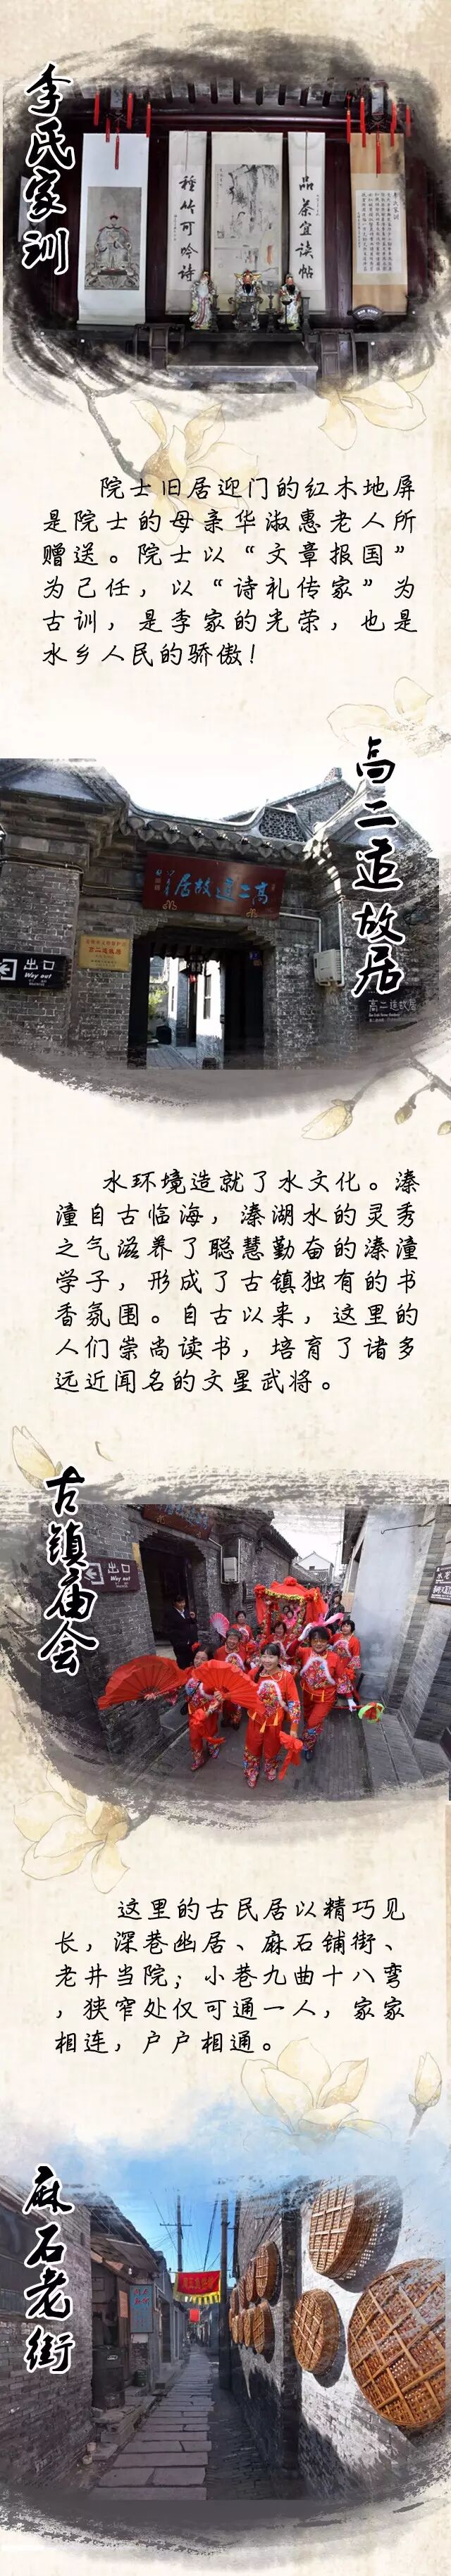 李氏家训
種竹可吟诗
品茶宜读帖
李氏家训
院士旧居迎门的红木地屏
是院士的母亲华淑惠老人所
赠送。院士以“文章报国”
为己任，以“诗礼传家”为
古训，是李家的光荣，也是
水乡人民的骄傲！
高二适故居
高二適故居
高二适故居
出口
Way out
高二适故居
水环境造就了水文化。溱
潼自古临海，溱湖水的灵秀
之气滋养了聪慧勤奋的溱潼
学子，形成了古镇独有的书
香氛围。自古以来，这里的
人们崇尚读书，培育了诸多
远近闻名的文星武将。
古镇庙会
出口
Way out
这里的古民居以精巧见
长，深巷幽居、麻石铺街、
老井当院；小巷九曲十八弯
，狭窄处仅可通一人，家家
相连，户户相通。
麻石老街